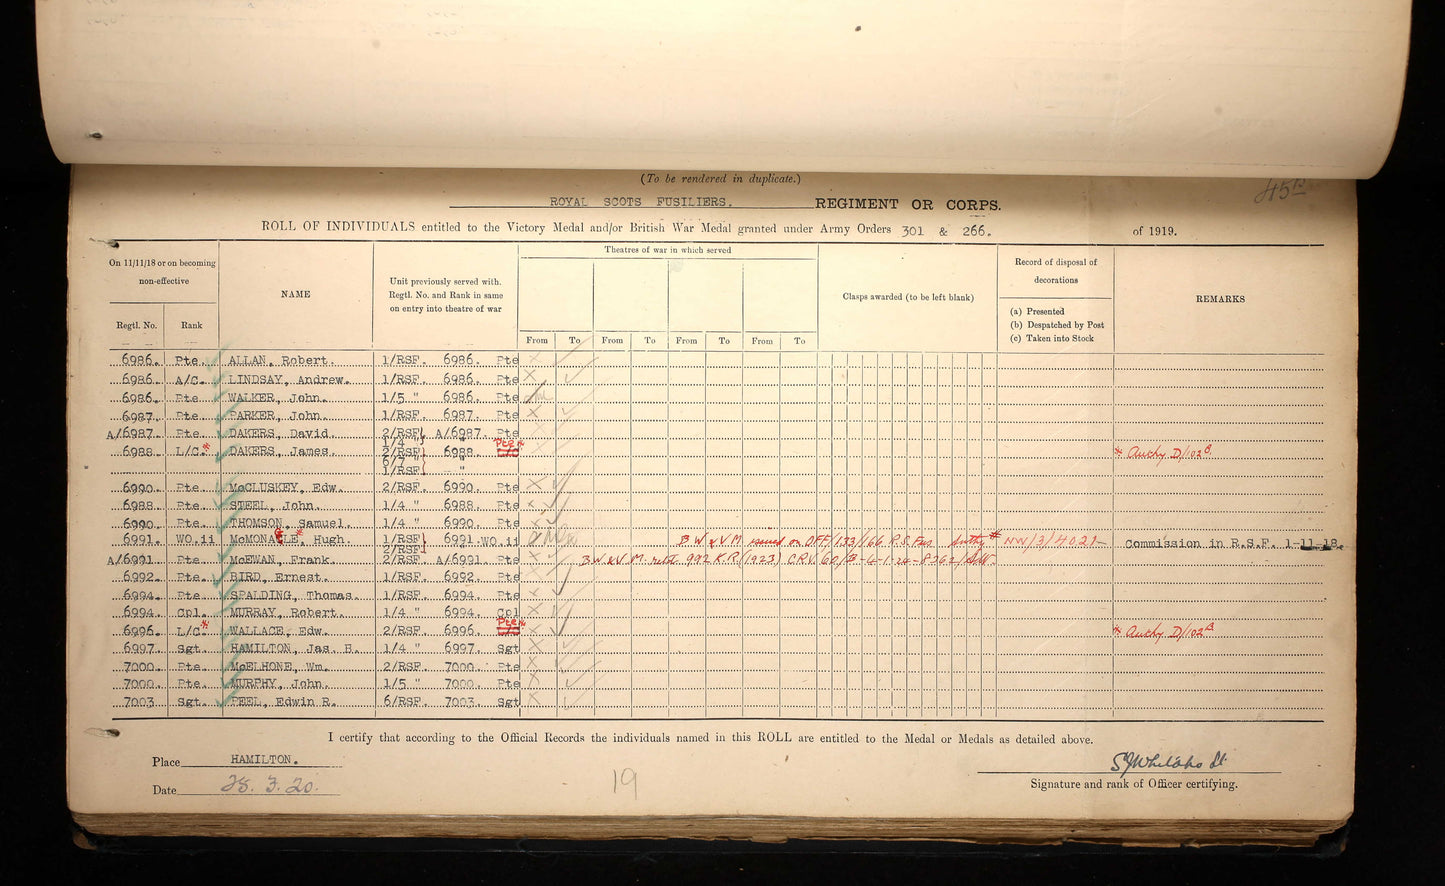 (To be rendered in duplicate.)
ROYAL SCOTS FUSILIERS. REGIMENT OR CORPS.
ROLL OF INDIVIDUALS entitled to the Victory Medal and/or British War Medal granted under Army Orders 301 & 266. of 1919.
On 11/11/18 or on becoming non-effective
Regtl. No. Rank
NAME
Unit previously served with. Regtl. No. and Rank in same on entry into theatre of war
Theatres of war in which served
From To From To From To From To
Clasps awarded (to be left blank)
Record of disposal of decorations
(a) Presented
(b) Despatched by Post
(c) Taken into Stock
REMARKS
6986. Pte. ALLAN, Robert. 1/RSF. 6986. Pte
6986. A/C. LINDSAY, Andrew. 1/RSF. 6986. Pte
6986. Pte WALKER, John. 1/5 " 6986. Pte
6987. Pte. PARKER, John. 1/RSF. 6987. Pte
A/6987. Pte. DAKERS, David. 2/RSF} A/6987. Pte
1/4 "} "
6988. L/C.* DAKERS, James. 2/RSF} 6988. Pte* * Authy D/102B.
6/7 "} "
1/RSF} "
6990. Pte. McCLUSKEY, Edw. 2/RSF. 6990. Pte
6988. Pte. STEEL, John. 1/4 " 6988. Pte
6990. Pte. THOMSON, Samuel. 1/4 " 6990. Pte
6991. WO.ii McMONAGLE*, Hugh. 1/RSF} 6991. WO.ii B W & V M issued on OFF/133/166 R.S.Fus Authy * NW/3/4021 Commission in R.S.F. 1-11-18.
2/RSF}
A/6991. Pte. McEWAN, Frank. 2/RSF. A/6991. Pte B W & V M. retd. 992 K.R. (1923)
6992. Pte. BIRD, Ernest. 1/RSF. 6992. Pte
6994. Pte. SPALDING, Thomas. 1/RSF. 6994. Pte
6994. Cpl. MURRAY, Robert. 1/4 " 6994. Cpl
6996. L/C.* WALLACE, Edw. 2/RSF. 6996. Pte* * Authy D/102B
6997. Sgt. HAMILTON, Jas. H. 1/4 " 6997. Sgt
7000. Pte. McELHONE, Wm. 2/RSF. 7000. Pte
7000. Pte. MURPHY, John. 1/5 " 7000. Pte
7003. Sgt. PEEL, Edwin R. 6/RSF. 7003. Sgt
I certify that according to the Official Records the individuals named in this ROLL are entitled to the Medal or Medals as detailed above.
Place HAMILTON.
Date 3. 20.
19
Signature and rank of Officer certifying.